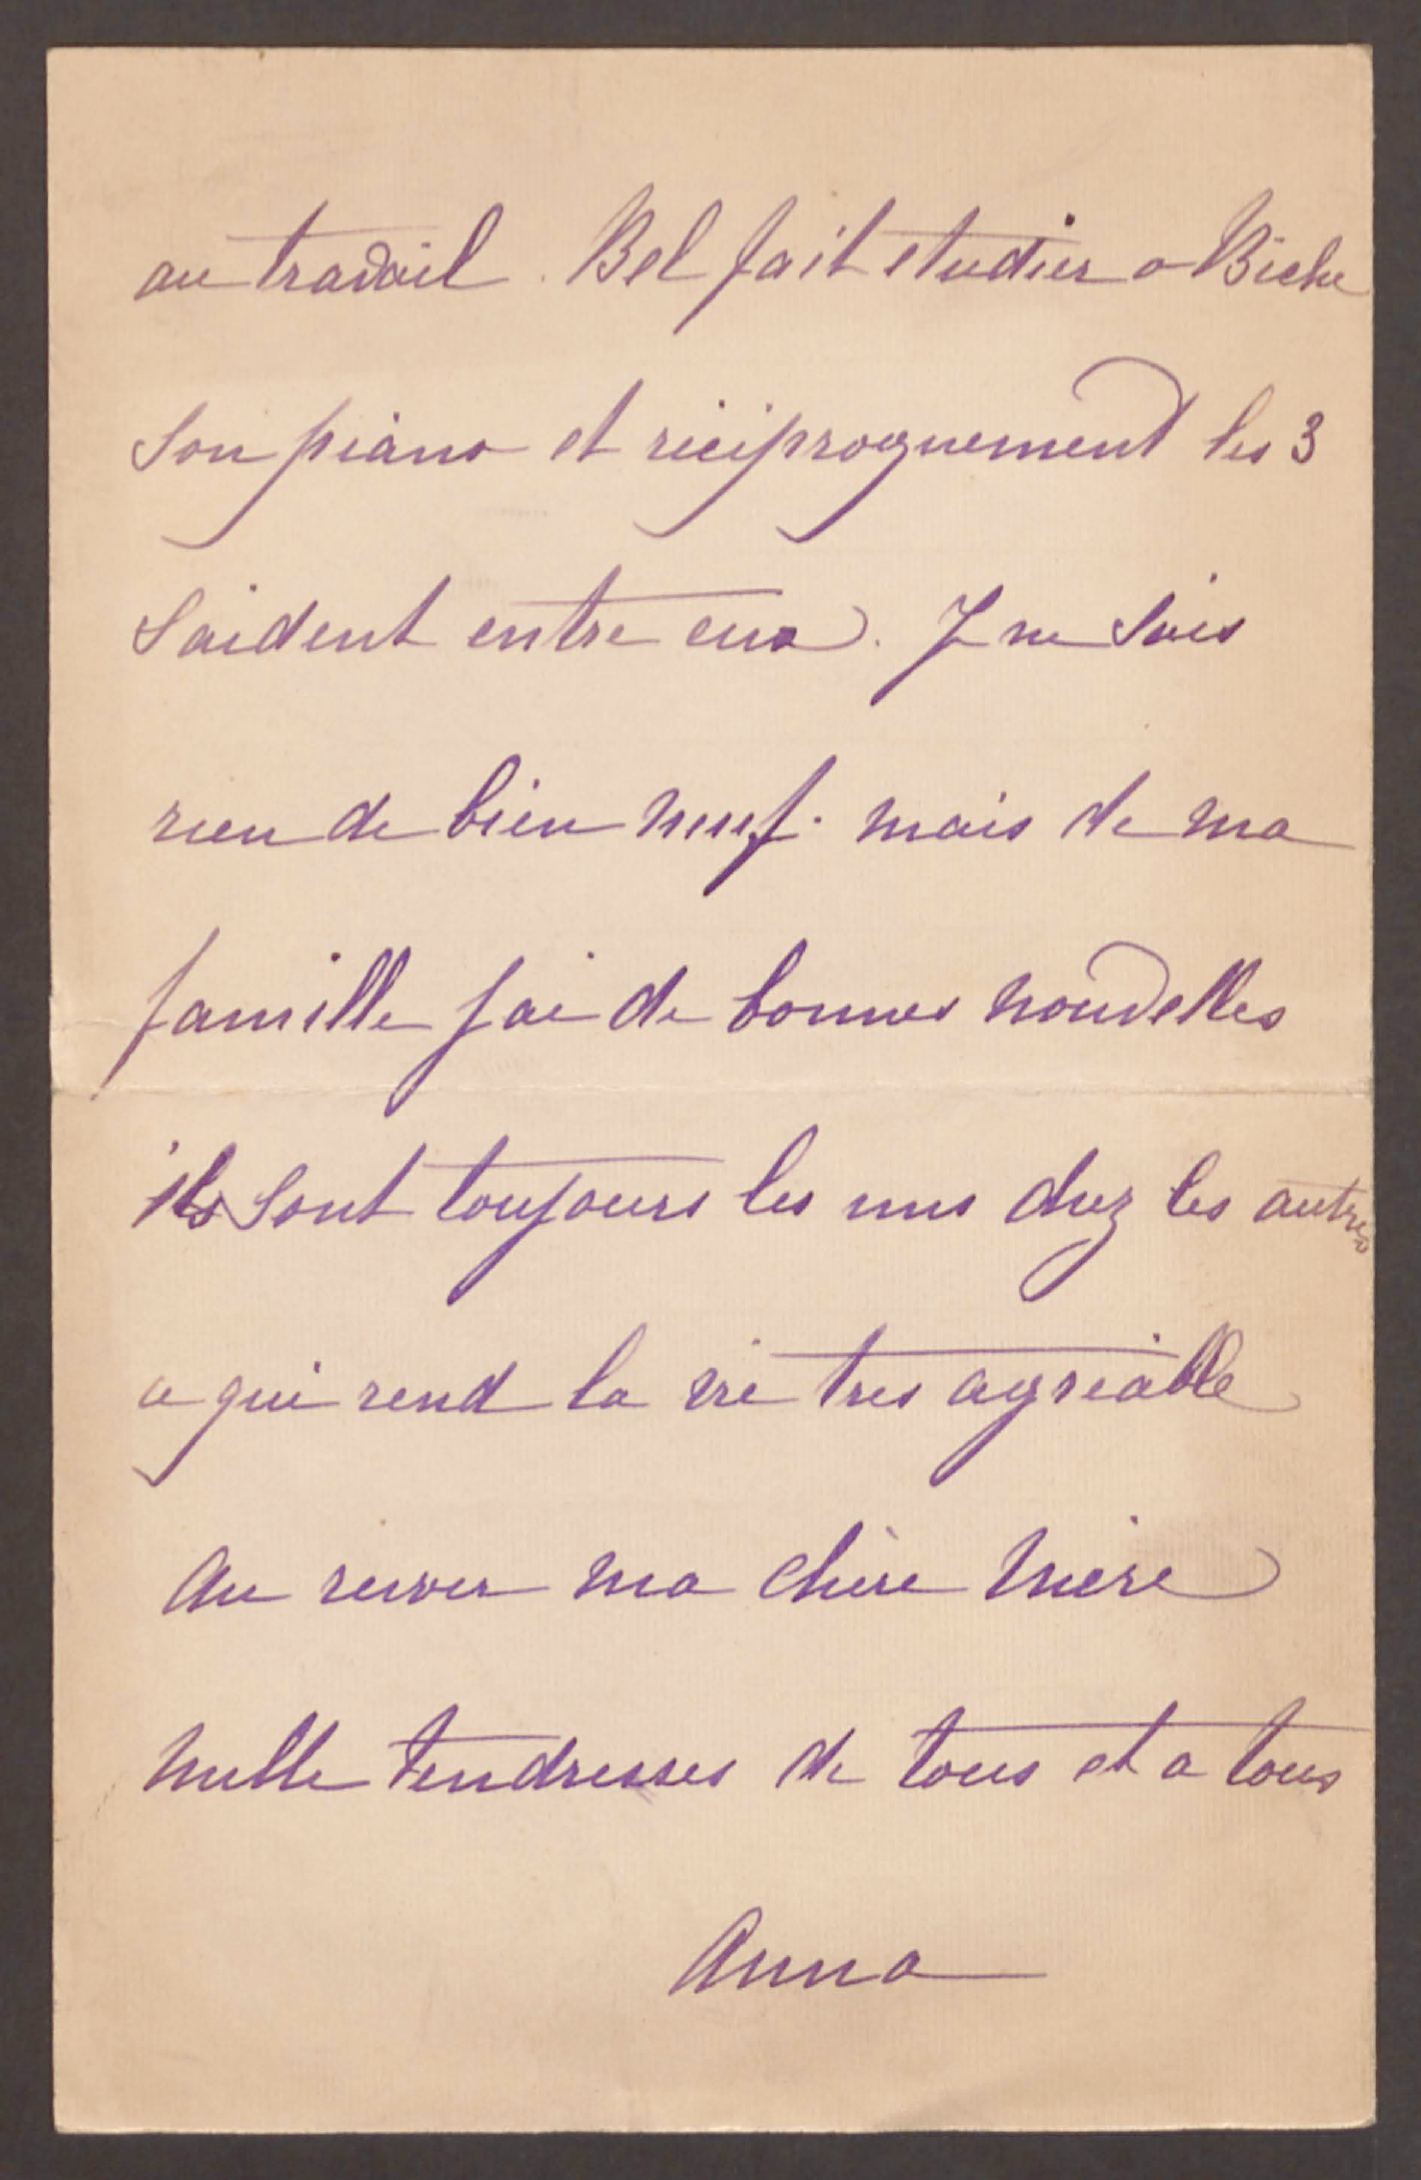 au travail. Bel fait etudier a Biche
son piano et réciproquement les 3
saident entre eux. Je ne sais
rien de bien neuf. mais de ma
famille jai de bonnes nouvelles
ils sont toujours les uns chez les autres
ce qui rend la vie tres agréable
au revoir ma chère mère
mille tendresses de tous et a tous
Anna